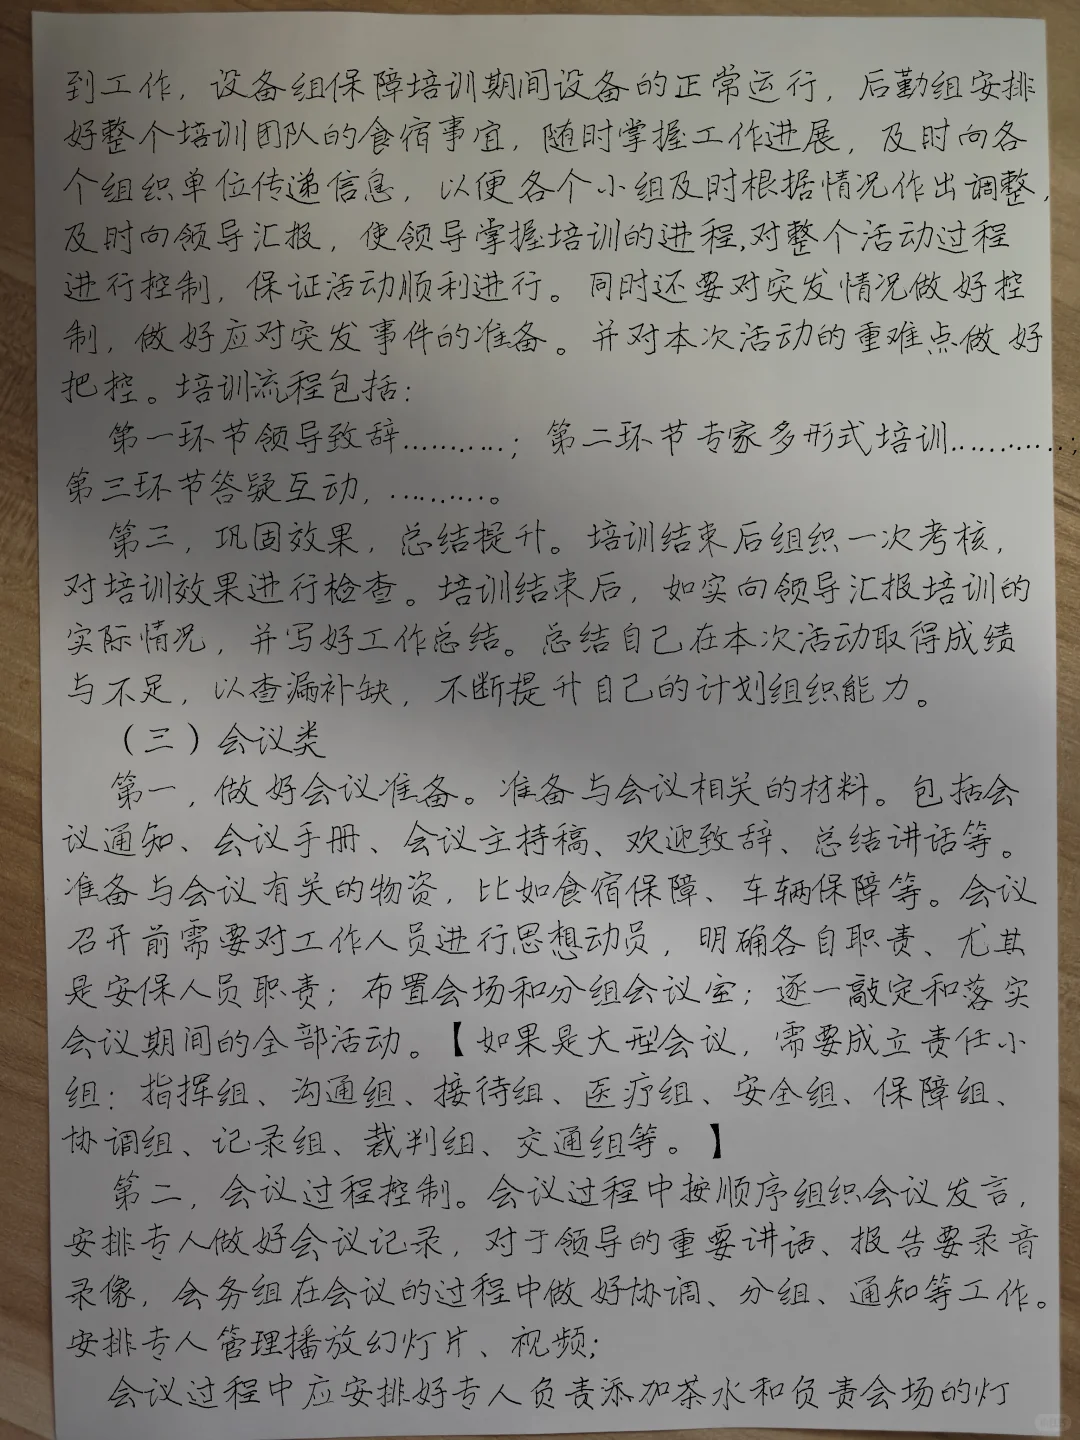 到工作，设备组保障培训期间设备的正常运行，后勤组安排
好整个培训团队的食宿事宜，随时掌握工作进展，及时向各
个组织单位传递信息，以便各个小组及时根据情况作出调整，
及时向领导汇报，使领导掌握培训的进程，对整个活动过程
进行控制，保证活动顺利进行。同时还要对突发情况做好控
制，做好应对突发事件的准备。并对本次活动的重难点做好
把控。培训流程包括：
第一环节领导致辞…………；第二环节专家多形式培训……………；
第三环节答疑互动，…………。
第三，巩固效果，总结提升。培训结束后组织一次考核，
对培训效果进行检查。培训结束后，如实向领导汇报培训的
实际情况，并写好工作总结。总结自己在本次活动取得成绩
与不足，以查漏补缺，不断提升自己的计划组织能力。
（三）会议类
第一，做好会议准备。准备与会议相关的材料。包括会
议通知、会议手册、会议主持稿、欢迎致辞、总结讲话等。
准备与会议有关的物资，比如食宿保障、车辆保障等。会议
召开前需要对工作人员进行思想动员，明确各自职责、尤其
是安保人员职责；布置会场和分组会议室；逐一敲定和落实
会议期间的全部活动。【如果是大型会议，需要成立责任小
组：指挥组、沟通组、接待组、医疗组、安全组、保障组、
协调组、记录组、裁判组、交通组等。】
第二，会议过程控制。会议过程中按顺序组织会议发言，
安排专人做好会议记录，对于领导的重要讲话、报告要录音
录像，会务组在会议的过程中做好协调、分组、通知等工作。
安排专人管理播放幻灯片、视频；
会议过程中应安排好专人负责添加茶水和负责会场的灯